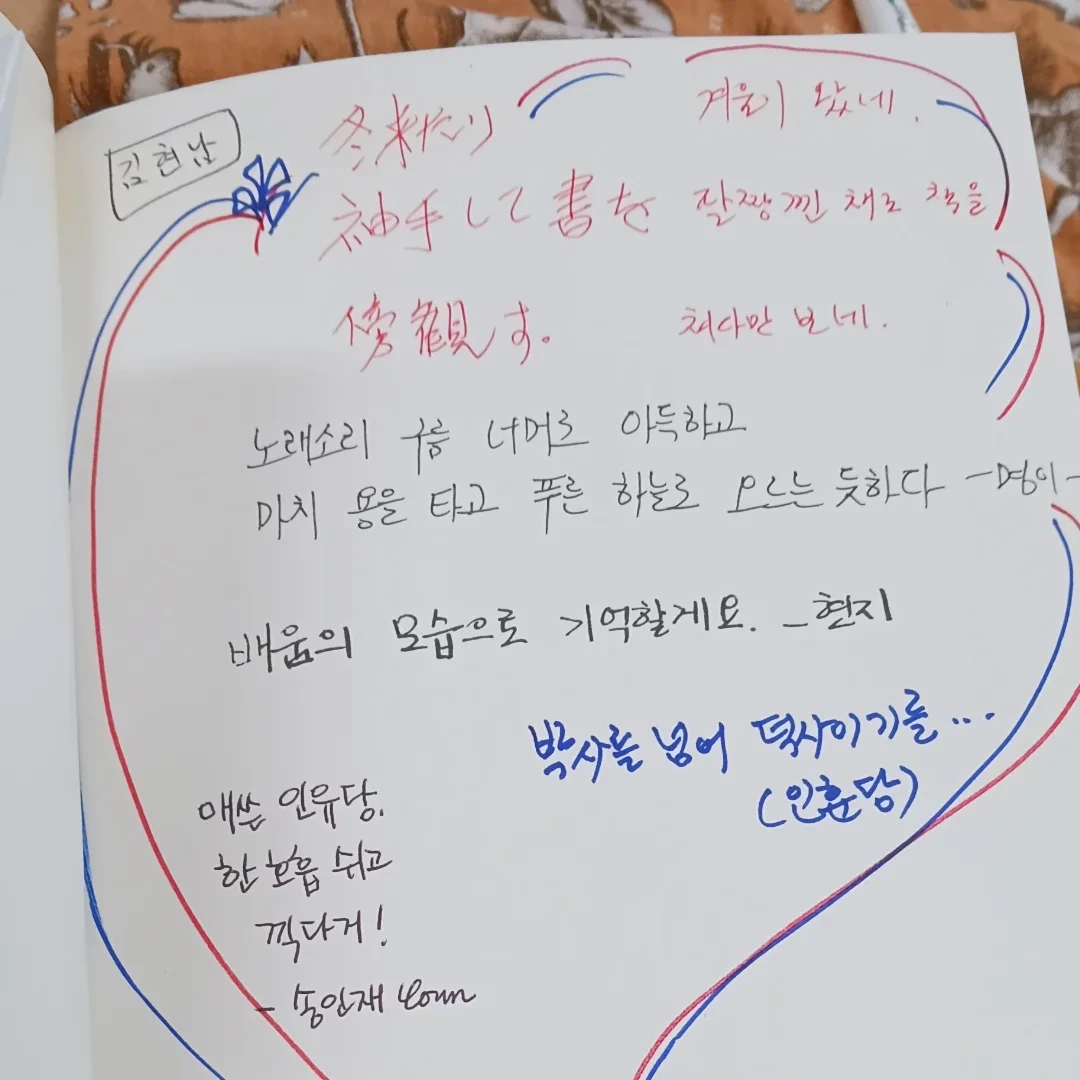 김현남
冬来たり 겨울이 왔네.
袖手して書を 팔짱낀 채로 책을
傍観す。 쳐다만 보네.
노래소리 구름 너머로 아득하고
마치 용을 타고 푸른 하늘로 오르는 듯하다 -명이-
배움의 모습으로 기억할게요. -현지
박사를 넘어 턱사이기를...
(인훈당)
애쓴 인유당.
한 호흡 쉬고
끽다거!
- 송인재